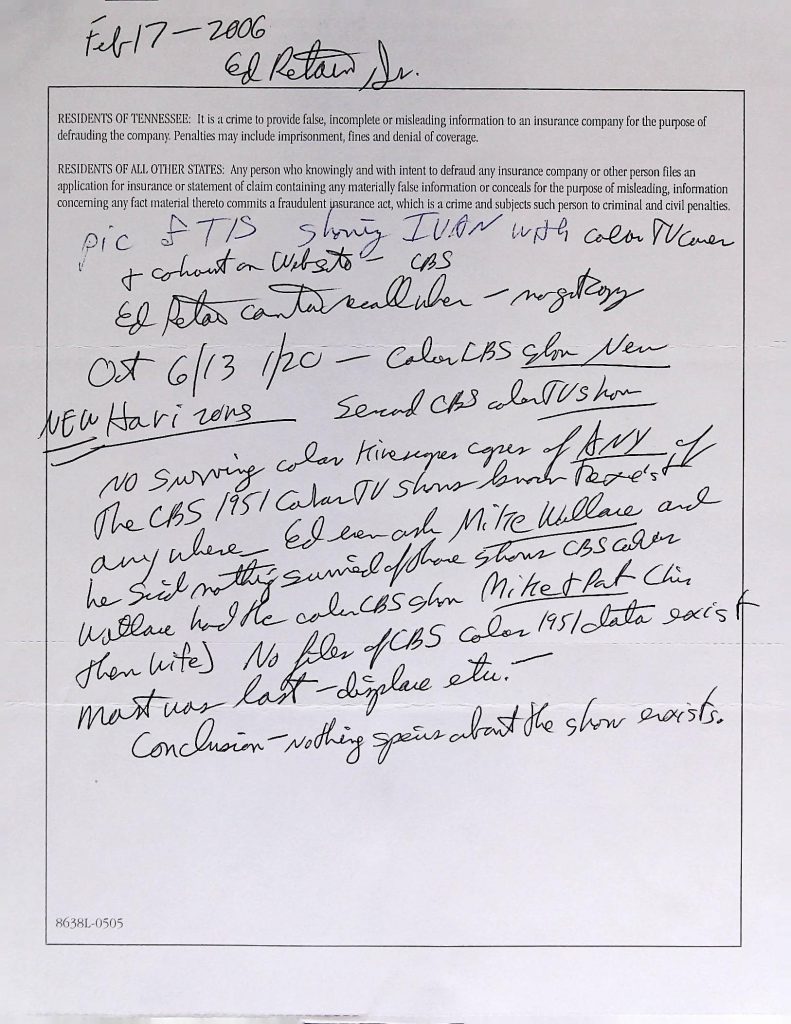 Feb 17 — 2006
Ed Retain Sr.
RESIDENTS OF TENNESSEE: It is a crime to provide false, incomplete or misleading information to an insurance company for the purpose of
defrauding the company. Penalties may include imprisonment, fines and denial of coverage.
RESIDENTS OF ALL OTHER STATES: Any person who knowingly and with intent to defraud any insurance company or other person files an
application for insurance or statement of claim containing any materially false information or conceals for the purpose of misleading, information
concerning any fact material thereto commits a fraudulent insurance act, which is a crime and subjects such person to criminal and civil penalties.
pic of T/S showing IVAN with color TV
+ on Website — CBS
Ed
Oct 6/13 1/20 — Color CBS show New
NEW Horizons Second CBS color TV show
No surviving color Kinescopes copies of ANY of
The CBS 1951 Color TV shows known to exist
anywhere — Ed even ask Mike Wallace and
he said nothing survived of those shows CBS color
Wallace had the color CBS show Mike & Pat (his
then wife) No files of CBS color 1951 data exist
Most was lost — displace etc. —
Conclusion — nothing about the show exists.
8638L-0505